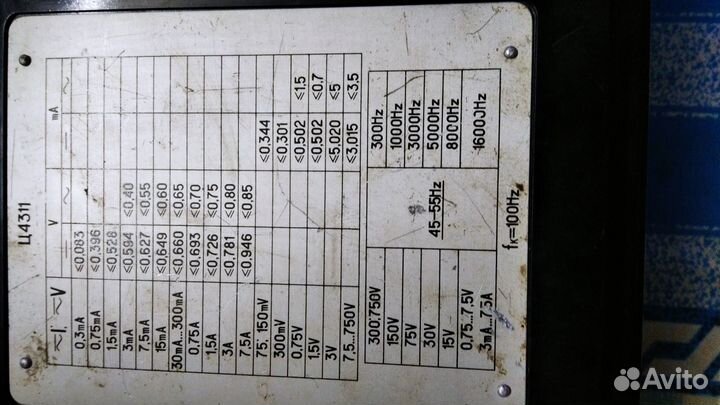 Ц4311
≂I, ≂V V mA
= ~ = ~
0,3mA ≤0,083
0,75mA ≤0,396
1,5mA ≤0,528
3mA ≤0,594 ≤0,40
7,5mA ≤0,627 ≤0,55
15mA ≤0,649 ≤0,60
30mA...300mA ≤0,660 ≤0,65
0,75A ≤0,693 ≤0,70
1,5A ≤0,726 ≤0,75
3A ≤0,781 ≤0,80
7,5A ≤0,946 ≤0,85
75,150mV ≤0,344
300mV ≤0,301
0,75V ≤0,502 ≤1,5
1,5V ≤0,502 ≤0,7
3V ≤5,020 ≤5
7,5...750V ≤3,015 ≤3,5
300,750V 300Hz
150V 1000Hz
75V 3000Hz
30V 45-55Hz 5000Hz
15V 8000Hz
0,75...7,5V
3mA...7,5A 16000Hz
fк=100Hz
Avito